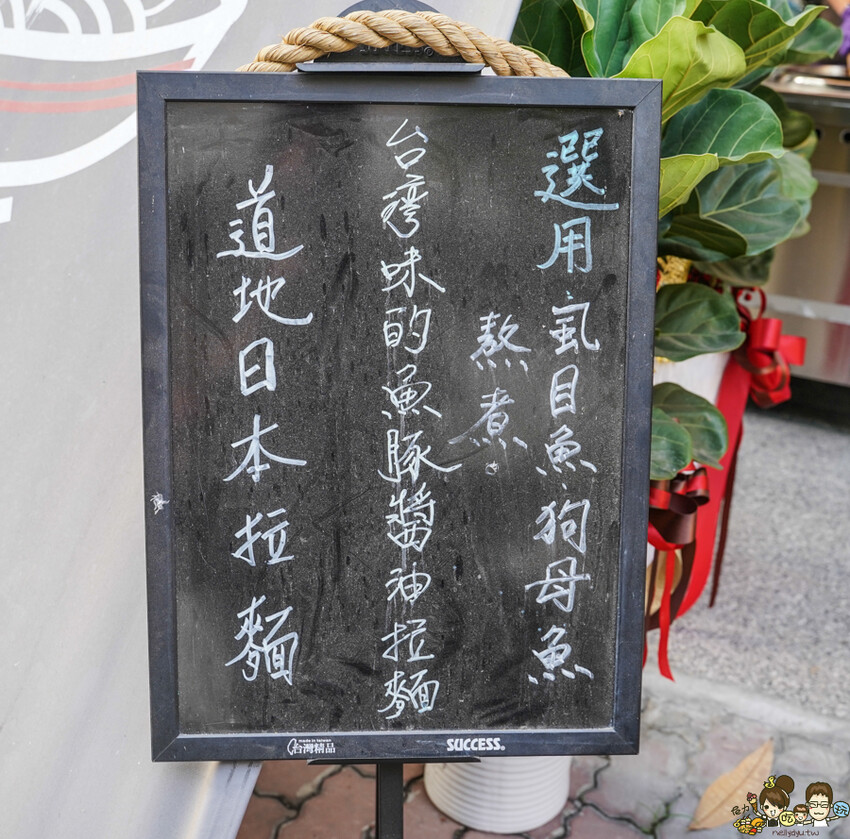 選用虱目魚狗母魚
熬煮。
台灣味的魚豚醬油拉麵
道地日本拉麵
made in taiwan
台灣精品
SUCCESS®
nellydyu.tw